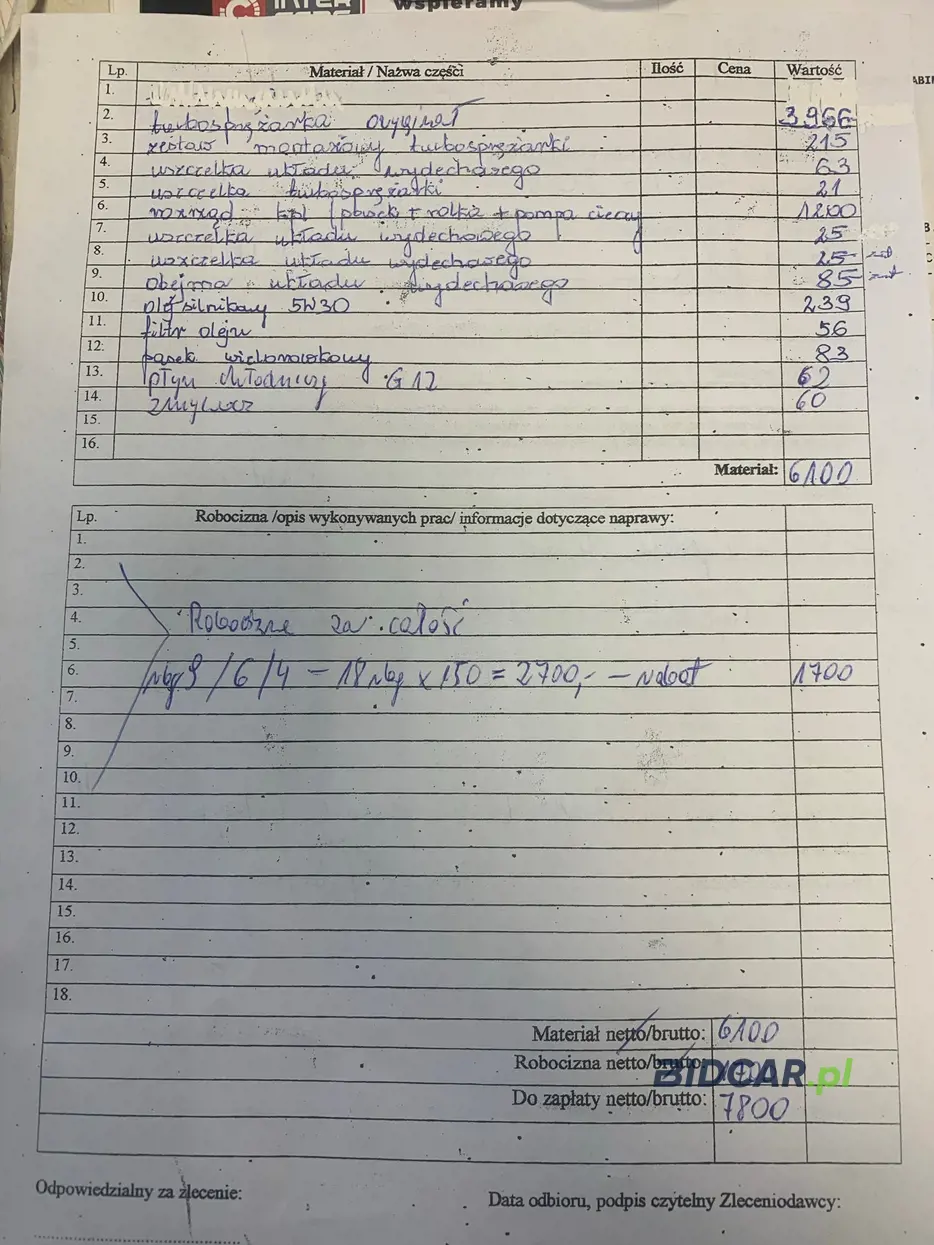 INTER
wspieramy
Lp. Materiał / Nazwa części Ilość Cena Wartość
1.
2. turbosprężarka oryginał 3966
3. zestaw montażowy turbosprężarki 215
4. uszczelka układu wydechowego 63
5. uszczelka turbosprężarki 21
6. rozrząd kpl (pasek + rolki + pompa cieczy 1200
7. uszczelka układu wydechowego 25
8. uszczelka układu wydechowego 25
9. obejma układu wydechowego 85
10. olej silnikowy 5W30 239
11. filtr oleju 56
12. pasek wielorowkowy 83
13. płyn chłodniczy G12 62
14. zmywacz 60
15.
16.
Materiał: 6100
Lp. Robocizna /opis wykonywanych prac/ informacje dotyczące naprawy:
1.
2.
3.
4. Robocizna za całość
5.
6. rbg 9/6/4 – 18 rbg x 150 = 2700,- – rabat 1700
7.
8.
9.
10.
11.
12.
13.
14.
15.
16.
17.
18.
Materiał netto/brutto: 6100
Robocizna netto/brutto:
BIDCAR.pl
Do zapłaty netto/brutto: 7800
Odpowiedzialny za zlecenie:
Data odbioru, podpis czytelny Zleceniodawcy: